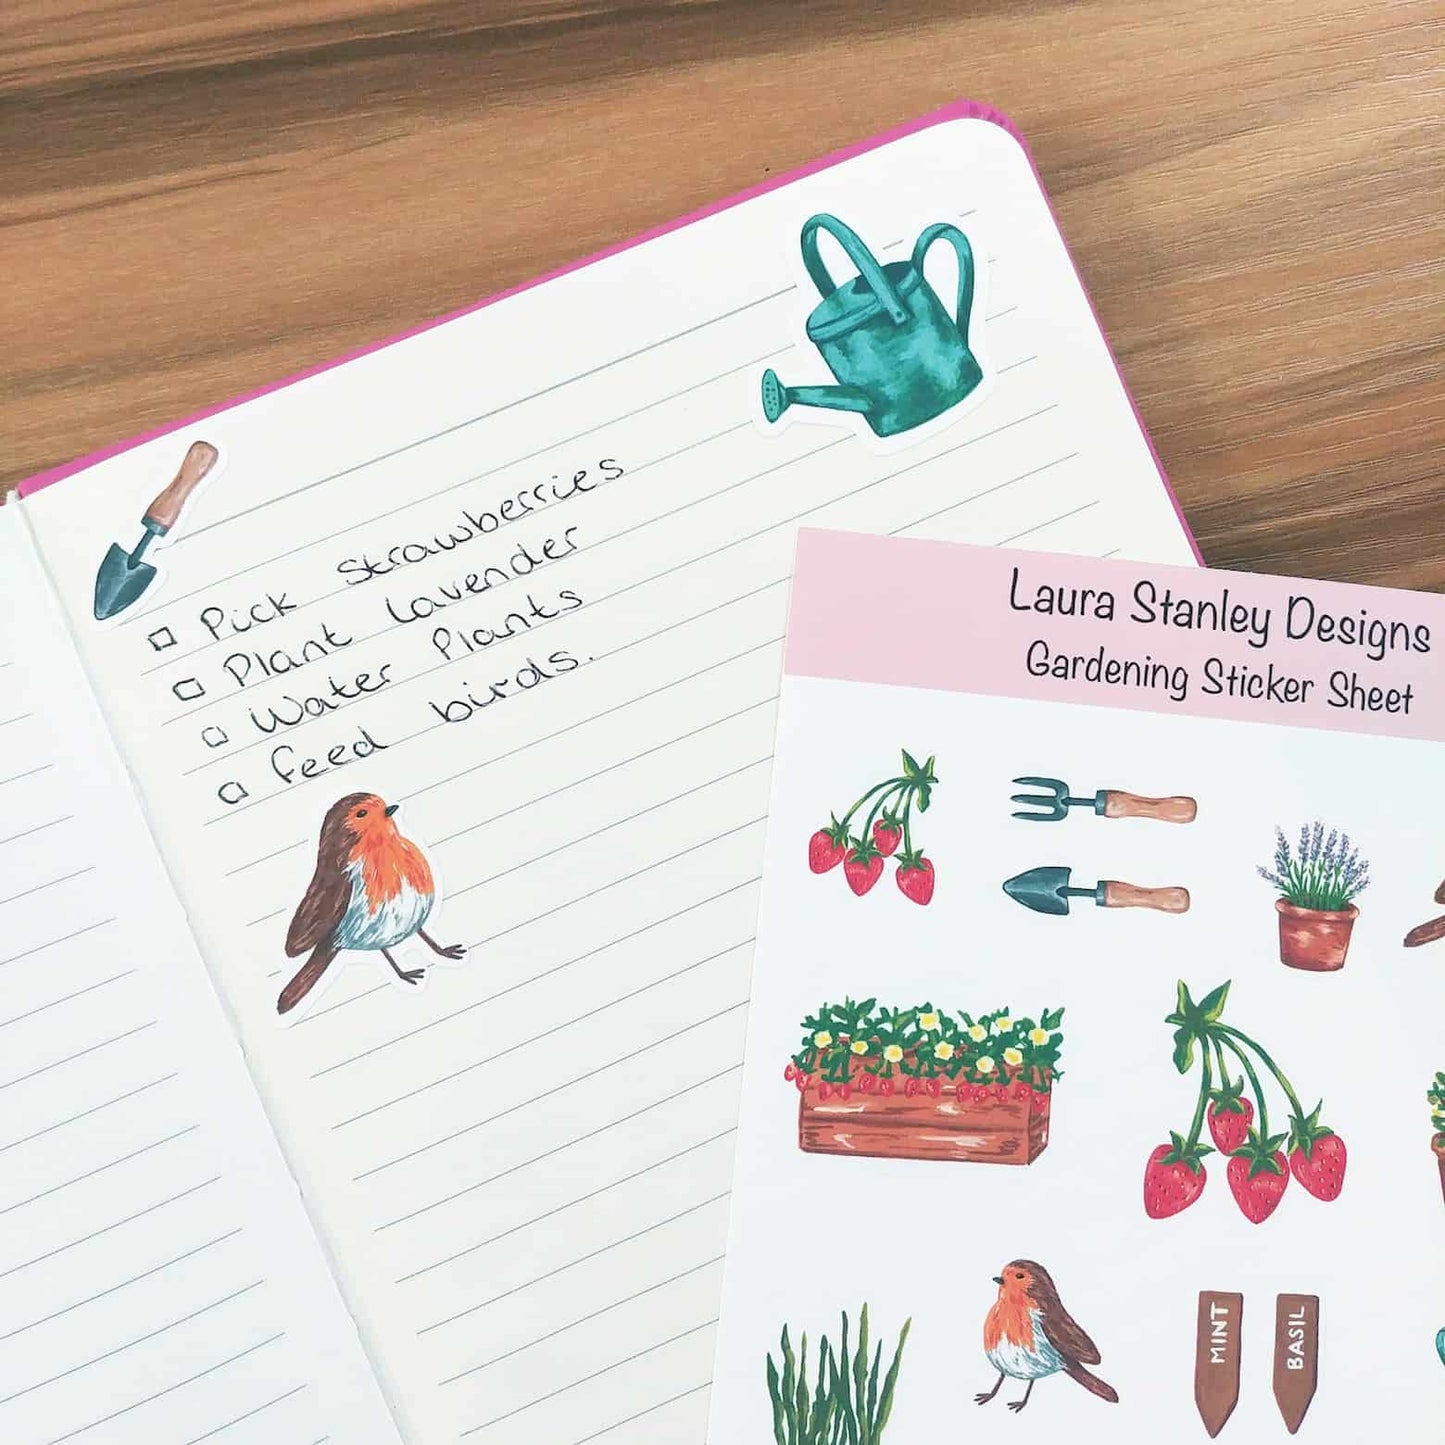 Pick strawberries
Plant lavender
Water Plants
feed birds.
Laura Stanley Designs
Gardening Sticker Sheet
MINT
BASIL